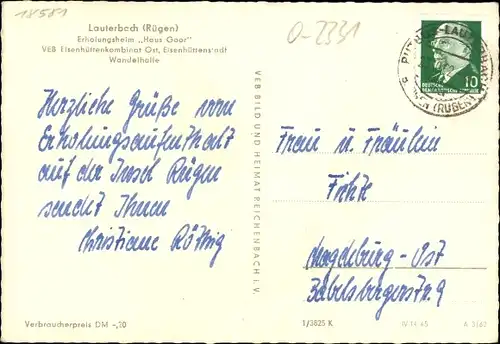 18581
Lauterbach (Rügen)
Erholungsheim „Haus Goor"
VEB Eisenhüttenkombinat Ost, Eisenhüttenstadt
Wandelhalle
0-2331
PUTBUS-LAUTERBACH
(RÜGEN)
DEUTSCHE
DEMOKRATISCHE REPUBLIK
10
Herzliche Grüße vom
Erholungsaufenthalt
auf der Insel Rügen
sendet Ihnen
Christiane Röttig
VEB BILD UND HEIMAT REICHENBACH i. V.
Frau u. Fräulein
Fichte
Magdeburg-Ost
Babelsbergerstr. 9
Verbraucherpreis DM -,20
1/3625 K
IV-14-45